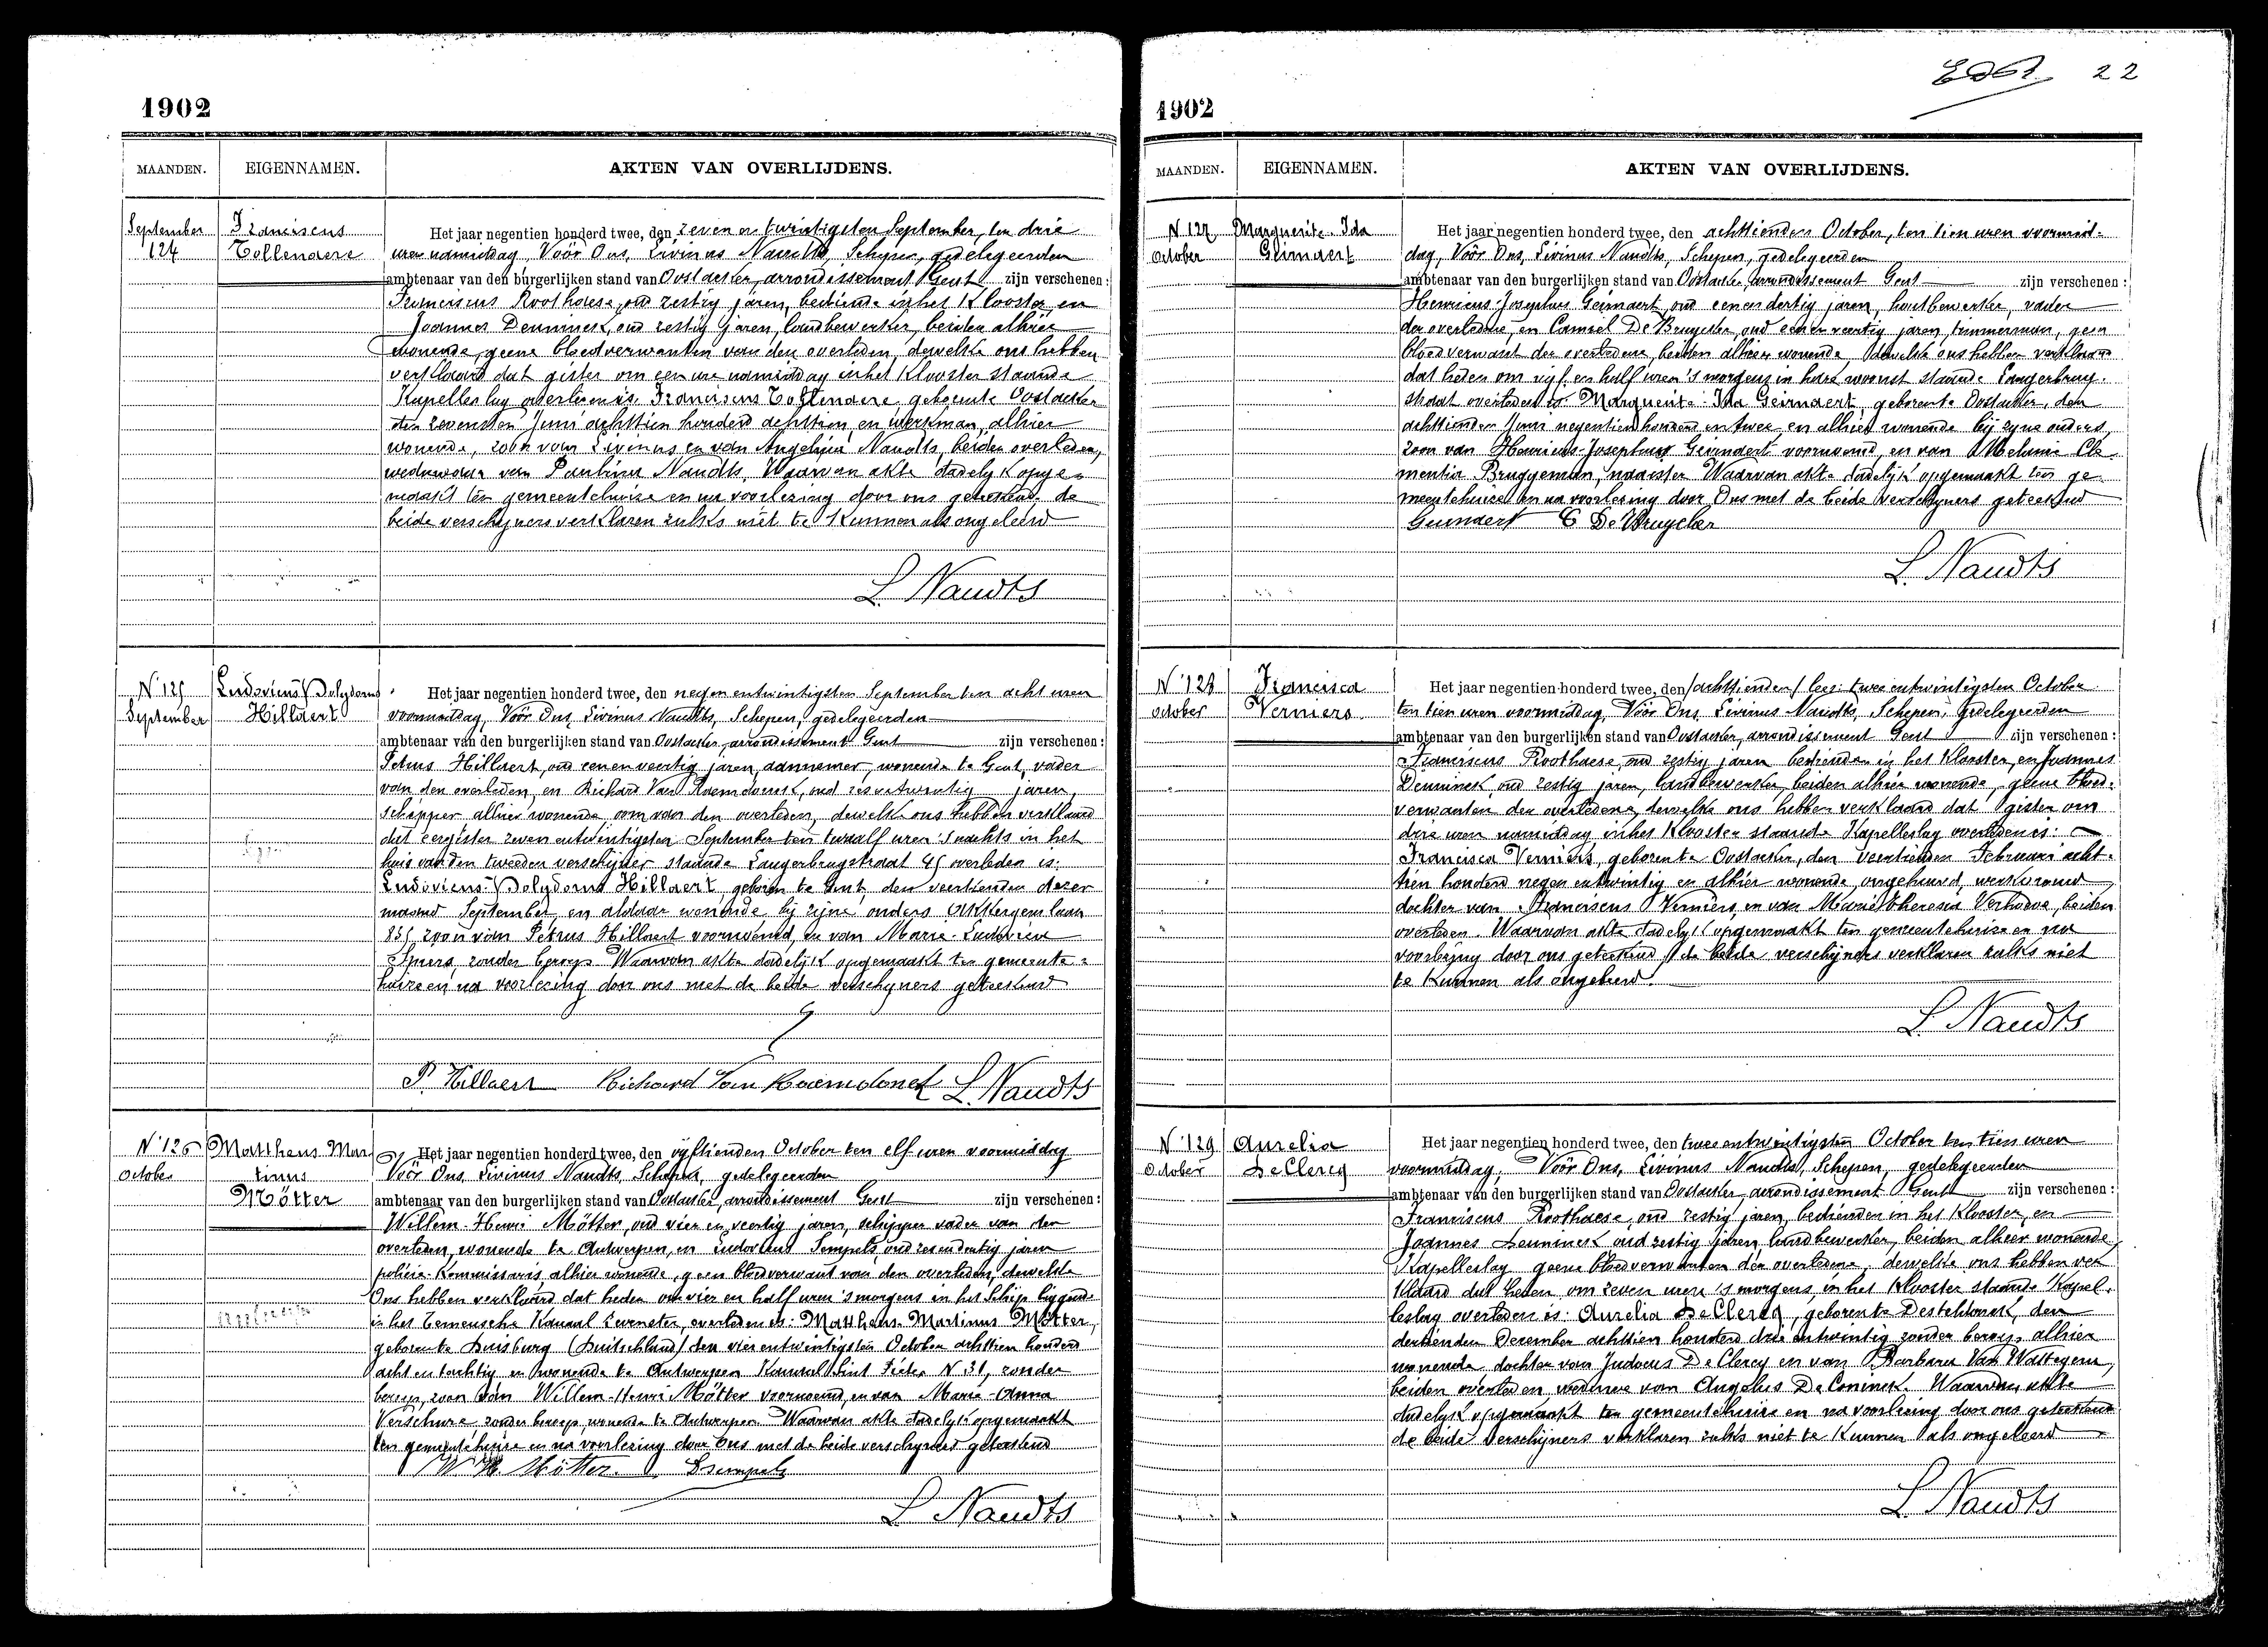 1902
MAANDEN. EIGENNAMEN. AKTEN VAN OVERLIJDENS.
September
124
Franciscus
Tollenaere
Het jaar negentien honderd twee, den zeven en twintigsten September, ten drie
uren namiddag, Voor Ons, Livinus Naudts, Schepen, gedelegeerden
ambtenaar van den burgerlijken stand van Oostacker, arrondissement Gent zijn verschenen:
Franciscus Roothaese, oud zestig jaren, bediende in het Klooster en
Joannes Denninck, oud zestig jaren, landbewerker, beiden alhier
wonende, geene bloedverwanten van den overleden, dewelke ons hebben
verklaard dat gister om een ure namiddag in het Klooster staande
Kapelleslag overleden is: Franciscus Tollenaere, geboren te Oostacker
den zevensten Juni achttien honderd achttien en werkman, alhier
wonende, zoon van Livinus en van Angelina Naudts, beiden overleden,
weduwaar van Paulina Naudts, Waarvan akte dadelyk opge-
maakt ten gemeentehuize en na voorlezing door ons geteekend, de
beide verschijners verklaren zulks niet te kunnen als ongeleerd
L. Naudts
N. 125
September
Ludovicus Polydorus
Hillaert
Het jaar negentien honderd twee, den negen entwintigsten September ten acht uren
voormiddag, Voor Ons, Livinus Naudts, Schepen, gedelegeerden
ambtenaar van den burgerlijken stand van Oostacker, arrondissement Gent zijn verschenen:
Petrus Hillaert, oud een en veertig jaren, aannemer, wonende te Gent, vader
van den overleden, en Richard Van Haemdonck, oud zes entwintig jaren,
schipper alhier wonende, oom van den overleden, dewelke ons hebben verklaard
dat eergister zeven entwintigsten September ten twaalf uren 's nachts in het
huis van den tweeden verschijner staande Langerbrugstraat 45 overleden is:
Ludovicus Polydorus Hillaert geboren te Gent, den veertienden dezer
maand September, en aldaar wonende bij zijne ouders
835 zoon van Petrus Hillaert voornoemd, en van Marie Ludovica
Spiers, zonder beroep. Waarvan akte dadelijk opgemaakt ten gemeente-
huize en na voorlezing door ons met de beide verschijners geteekend
P. Hillaert Richard Van Haemdonck L. Naudts
N. 126
October
Mattheus Mar
tinus
Mötter
Het jaar negentien honderd twee, den vyftienden October ten elf uren voormiddag
Voor Ons, Livinus Naudts, Schepen, gedelegeerden
ambtenaar van den burgerlijken stand van Oostacker, arrondissement Gent zijn verschenen:
Willem Henri Mötter, oud vier en veertig jaren, schipper vader van den
overleden, wonende te Antwerpen, en Ludovicus Sempels, oud zesendertig jaren
policie-Kommissaris, alhier wonende, geen bloedverwant van den overleden, dewelke
Ons hebben verklaard dat heden om vier en half uren 's morgens in het schip liggende
in het Terneusche Kanaal overleden is: Mattheus Martinus Mötter,
geboren te Duisburg (Duitschland) den vier entwintigsten October achttien honderd
acht en tachtig en wonende te Antwerpen Kanaal Sint Pieter N. 31, zonder
beroep, zoon van Willem Henri Mötter voornoemd, en van Marie Anna
Verschure, zonder beroep, wonende te Antwerpen. Waarvan akte dadelyk opgemaakt
ten gemeentehuize en na voorlezing door Ons met de beide verschyners geteekend
W H Mötter. Lsempels
L. Naudts
22
1902
MAANDEN. EIGENNAMEN. AKTEN VAN OVERLIJDENS.
N. 127
October
Marguerite Ida
Geirnaert
Het jaar negentien honderd twee, den achttienden October, ten tien uren voormid-
dag, Voor Ons, Livinus Naudts, Schepen, gedelegeerden
ambtenaar van den burgerlijken stand van Oostacker, arrondissement Gent zijn verschenen:
Henricus Josephus Geirnaert, oud een en dertig jaren, houtbewerker, vader
der overledene, en Camiel De Bruycker, oud een en veertig jaren, timmerman, geen
bloedverwant der overledene, beiden alhier wonende, dewelke ons hebben verklaard
dat heden om vyf en half uren 's morgens in hare woonst staande Langerbrug-
straat overleden is: Marguerite Ida Geirnaert, geboren te Oostacker, den
achttienden Juni negentien honderd en twee, en alhier wonende bij zyne ouders,
zoon van Henricus Josephus Geirnaert voornoemd, en van Melanie Cle-
mentia Bruggeman, naaister. Waarvan akte dadelijk opgemaakt ten ge-
meentehuize en na voorlezing door Ons met de beide verschijners geteekend
Geirnaert C De Bruycker
L. Naudts
N. 128
October
Francisca
Verniers
Het jaar negentien honderd twee, den (achttienden) lees: twee entwintigsten October
ten tien uren voormiddag, Voor Ons, Livinus Naudts, Schepen, gedelegeerden
ambtenaar van den burgerlijken stand van Oostacker, arrondissement Gent zijn verschenen:
Franciscus Roothaese, oud zestig jaren bedienden in het Klooster, en Joannes
Denninck, oud zestig jaren, landbewerker, beiden alhier wonende, geene bloed-
verwanten der overledene, dewelke ons hebben verklaard dat gister om
drie uren namiddag in het Klooster staande Kapelleslag overleden is:
Francisca Verniers, geboren te Oostacker, den veertienden Februari acht-
tien honderd negen entwintig en alhier wonende, ongehuwd, werkvrouw
dochter van Franciscus Verniers, en van Marie Theresia Verhoeve, beiden
overleden. Waarvan akte dadelyk opgemaakt ten gemeentehuize en na
voorlezing door ons geteekend, de beide verschijners verklaren zulks niet
te kunnen als ongeleerd.
L. Naudts
N. 129
October
Aurelia
DeClercq
Het jaar negentien honderd twee, den twee entwintigsten October ten tien uren
voormiddag, Voor Ons, Livinus Naudts, Schepen, gedelegeerden
ambtenaar van den burgerlijken stand van Oostacker, arrondissement Gent zijn verschenen:
Franciscus Roothaese, oud zestig jaren, bedienden in het Klooster, en
Joannes Denninck oud zestig jaren, landbewerker, beiden alhier wonende,
Kapelleslag geene bloedverwanten der overledene, dewelke ons hebben ver
klaard dat heden, om zeven uren 's morgens, in het Klooster staande Kapel-
leslag overleden is: Aurelia DeClercq, geboren te Desteldonck, den
dertienden December achttien honderd drie entwintig zonder beroep, alhier
wonende, dochter van Judocus De Clercq en van Barbara Van Wattegem,
beiden overleden, weduwe van Angelus De Coninck. Waarvan akte
dadelyk opgemaakt ten gemeentehuize en na voorlezing door ons geteekend
de beide verschijners verklaren zulks niet te kunnen als ongeleerd
L. Naudts